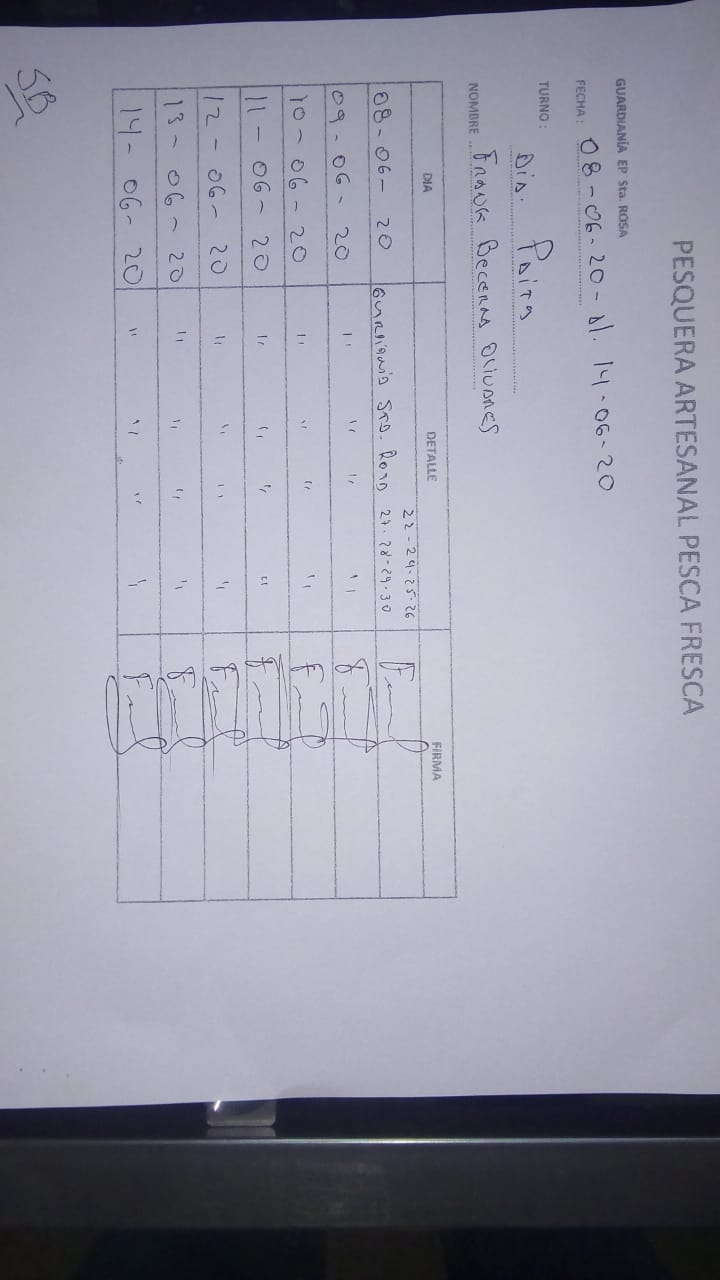 PESQUERA ARTESANAL PESCA FRESCA
GUARDIANÍA EP Sta. ROSA
FECHA: 08-06-20- Al. 14-06-20
TURNO: Dia. Paita
NOMBRE Frank Becerra Olivares
DIA DETALLE FIRMA
08-06-20 Guardiania Sta. Rosa 22-24-25-26
27-28-29-30
09-06-20 " " " "
10-06-20 " " " "
11-06-20 " " " "
12-06-20 " " " "
13-06-20 " " " "
14-06-20 " " " "
SB